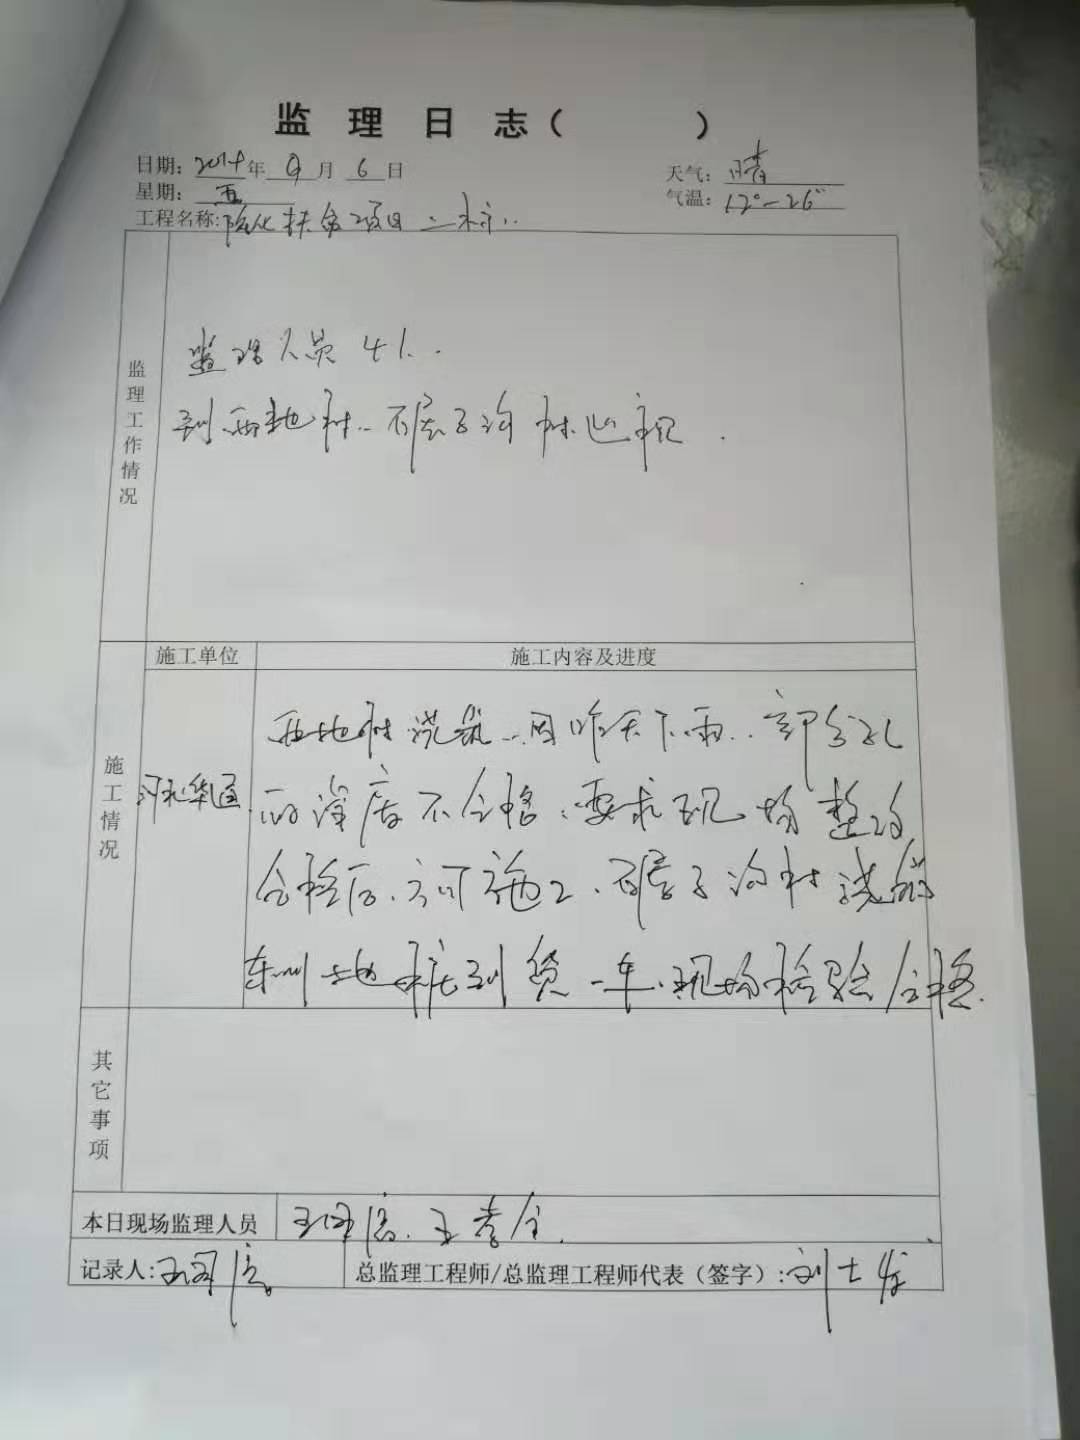 监 理 日 志（ ）
日期：2019年 9 月 6 日
天气：晴
星期：五
气温：12°-26°
工程名称：隆化扶贫项目二标
监理工作情况
监理人员4人.
到西地村..石层子沟村巡视.
施工单位
施工内容及进度
施工情况
河北华通
西地村浇筑..因昨天下雨..部分孔
的深度不合格、要求现场整改
合格后、方可施工、石层子沟村浇筑
地桩到货一车、现场检验合格.
其它事项
本日现场监理人员
王泽信. 王孝全.
记录人：
总监理工程师/总监理工程师代表（签字）：刘士